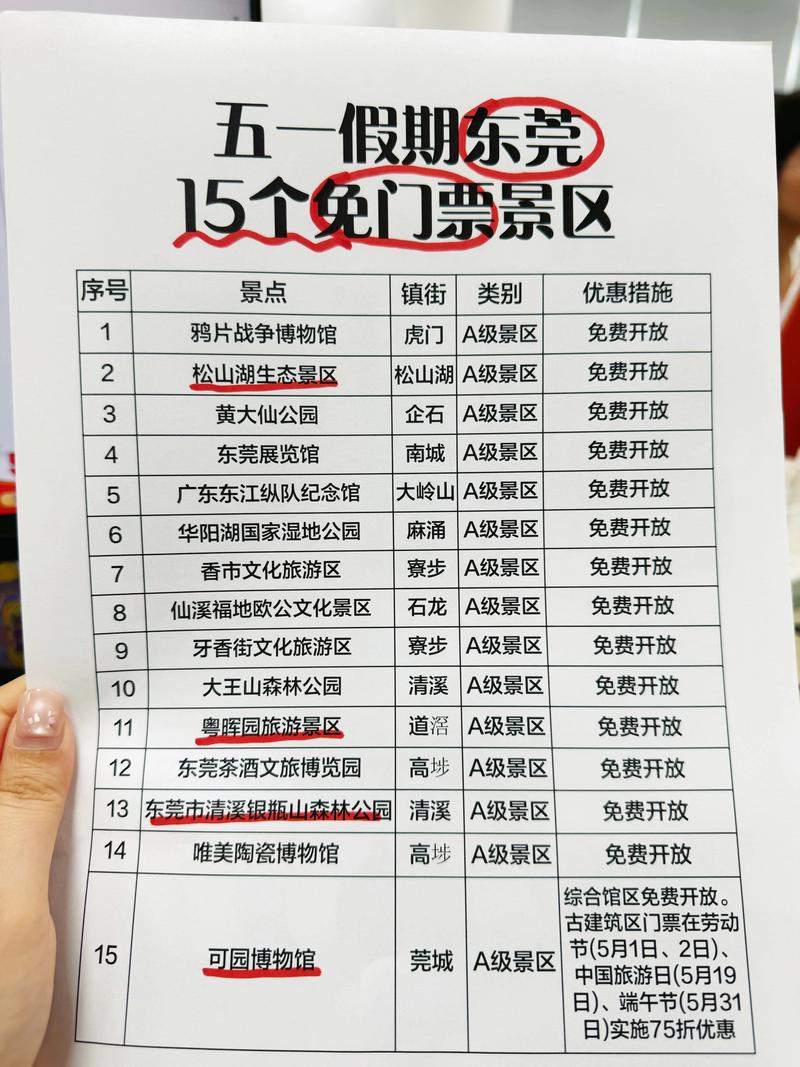 五一假期东莞
15个免门票景区
序号 景点 镇街 类别 优惠措施
1 鸦片战争博物馆 虎门 A级景区 免费开放
2 松山湖生态景区 松山湖 A级景区 免费开放
3 黄大仙公园 企石 A级景区 免费开放
4 东莞展览馆 南城 A级景区 免费开放
5 广东东江纵队纪念馆 大岭山 A级景区 免费开放
6 华阳湖国家湿地公园 麻涌 A级景区 免费开放
7 香市文化旅游区 寮步 A级景区 免费开放
8 仙溪福地欧公文化景区 石龙 A级景区 免费开放
9 牙香街文化旅游区 寮步 A级景区 免费开放
10 大王山森林公园 清溪 A级景区 免费开放
11 粤晖园旅游景区 道滘 A级景区 免费开放
12 东莞茶酒文旅博览园 高埗 A级景区 免费开放
13 东莞市清溪银瓶山森林公园 清溪 A级景区 免费开放
14 唯美陶瓷博物馆 高埗 A级景区 免费开放
15 可园博物馆 莞城 A级景区 综合馆区免费开放。
古建筑区门票在劳动
节(5月1日、2日)、
中国旅游日(5月19
日)、端午节(5月31
日)实施75折优惠